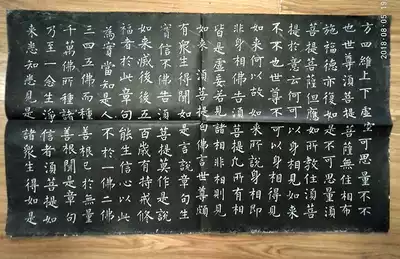 方四維上下虛空可思量不不
也世尊須菩提菩薩無住相布
施福德亦復如是不可思量須
菩提菩薩但應如所教住須菩
提於意云何可以身相見如來
不不也世尊不可以身相得見
如來何以故如來所說身相即
非身相佛告須菩提凡所有相
皆是虛妄若見諸相非相則見
如來 須菩提白佛言世尊頗
有眾生得聞如是言說章句生
實信不佛告須菩提莫作是說
如來滅後後五百歲有持戒修
福者於此章句能生信心以此
為實當知是人不於一佛二佛
三四五佛而種善根已於無量
千萬佛所種諸善根聞是章句
乃至一念生淨信者須菩提如
來悉知悉見是諸眾生得如是
2018.08.05